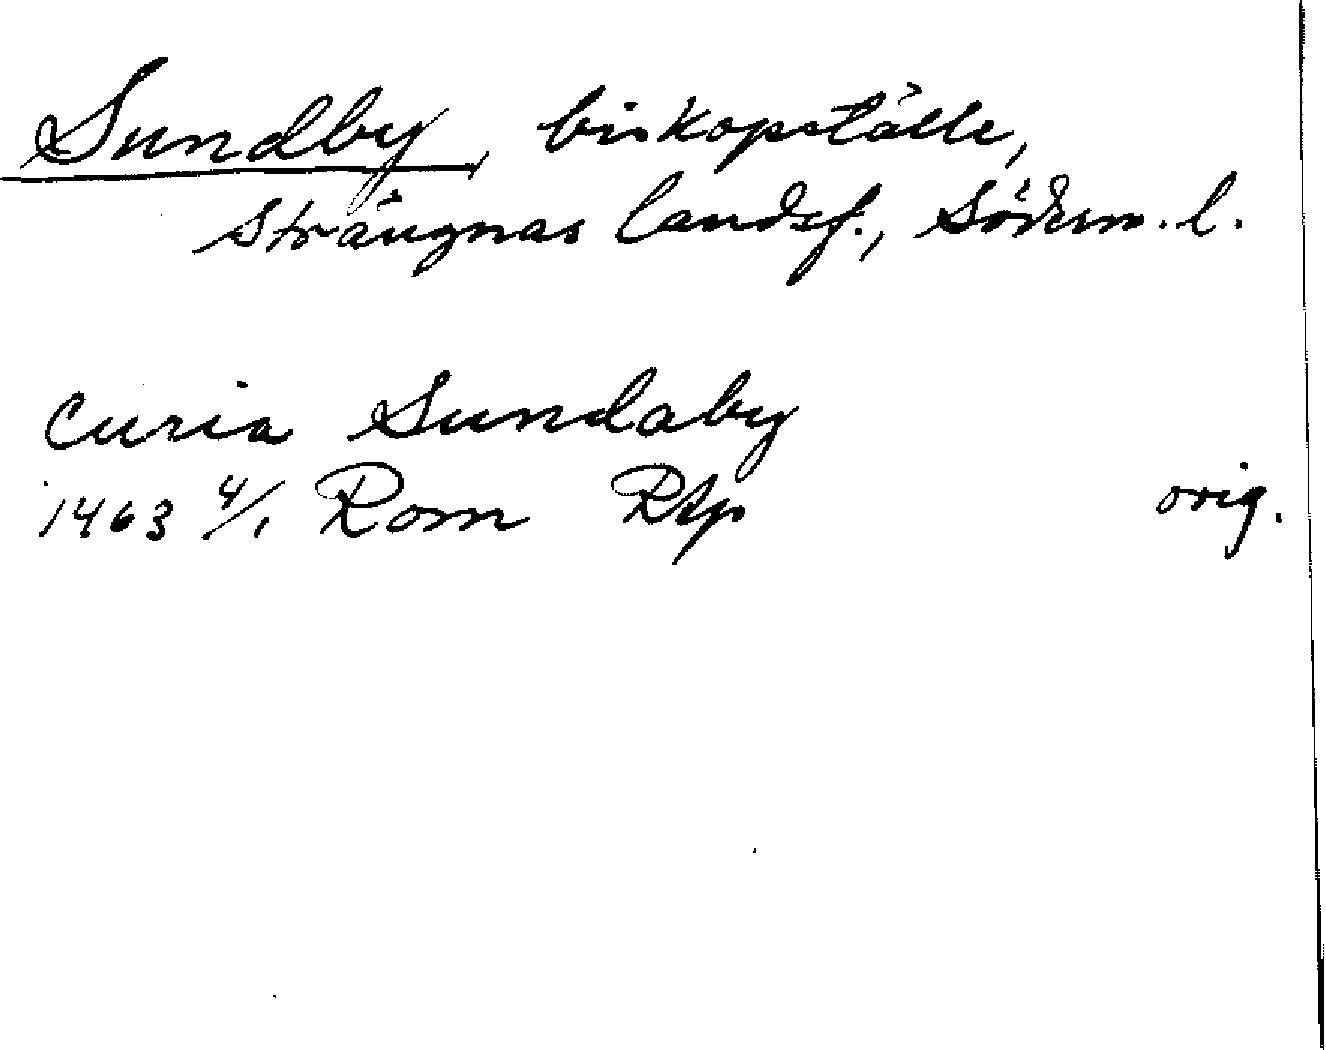 Sundby, biskopställe,
Strängnäs landsf., Söderm. l.
Curia Sundaby
1463 4/1 Rom Rtp orig.